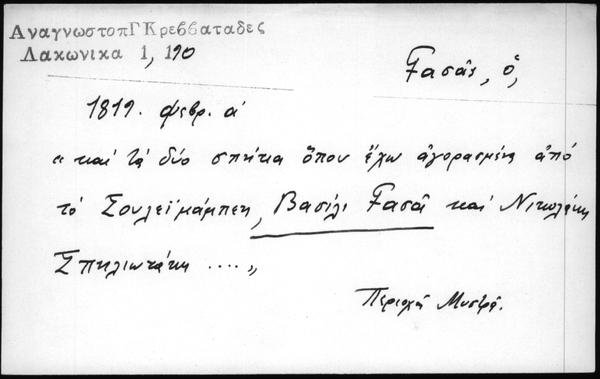 ΑναγνωστοπΓΚρεββαταδες
Λακωνικα 1, 190
Γασᾶς, ὁ,
1819. φεβρ. α'
" καί τά δύο σπήτια ὅπου ἔχω ἀγορασμένα ἀπό
τό Σουλεϊμάμπεη, Βασίλι Γασᾶ καί Νικολάκη
Σπηλιωτάκη ....„
Περιοχή Μυστρᾶ.